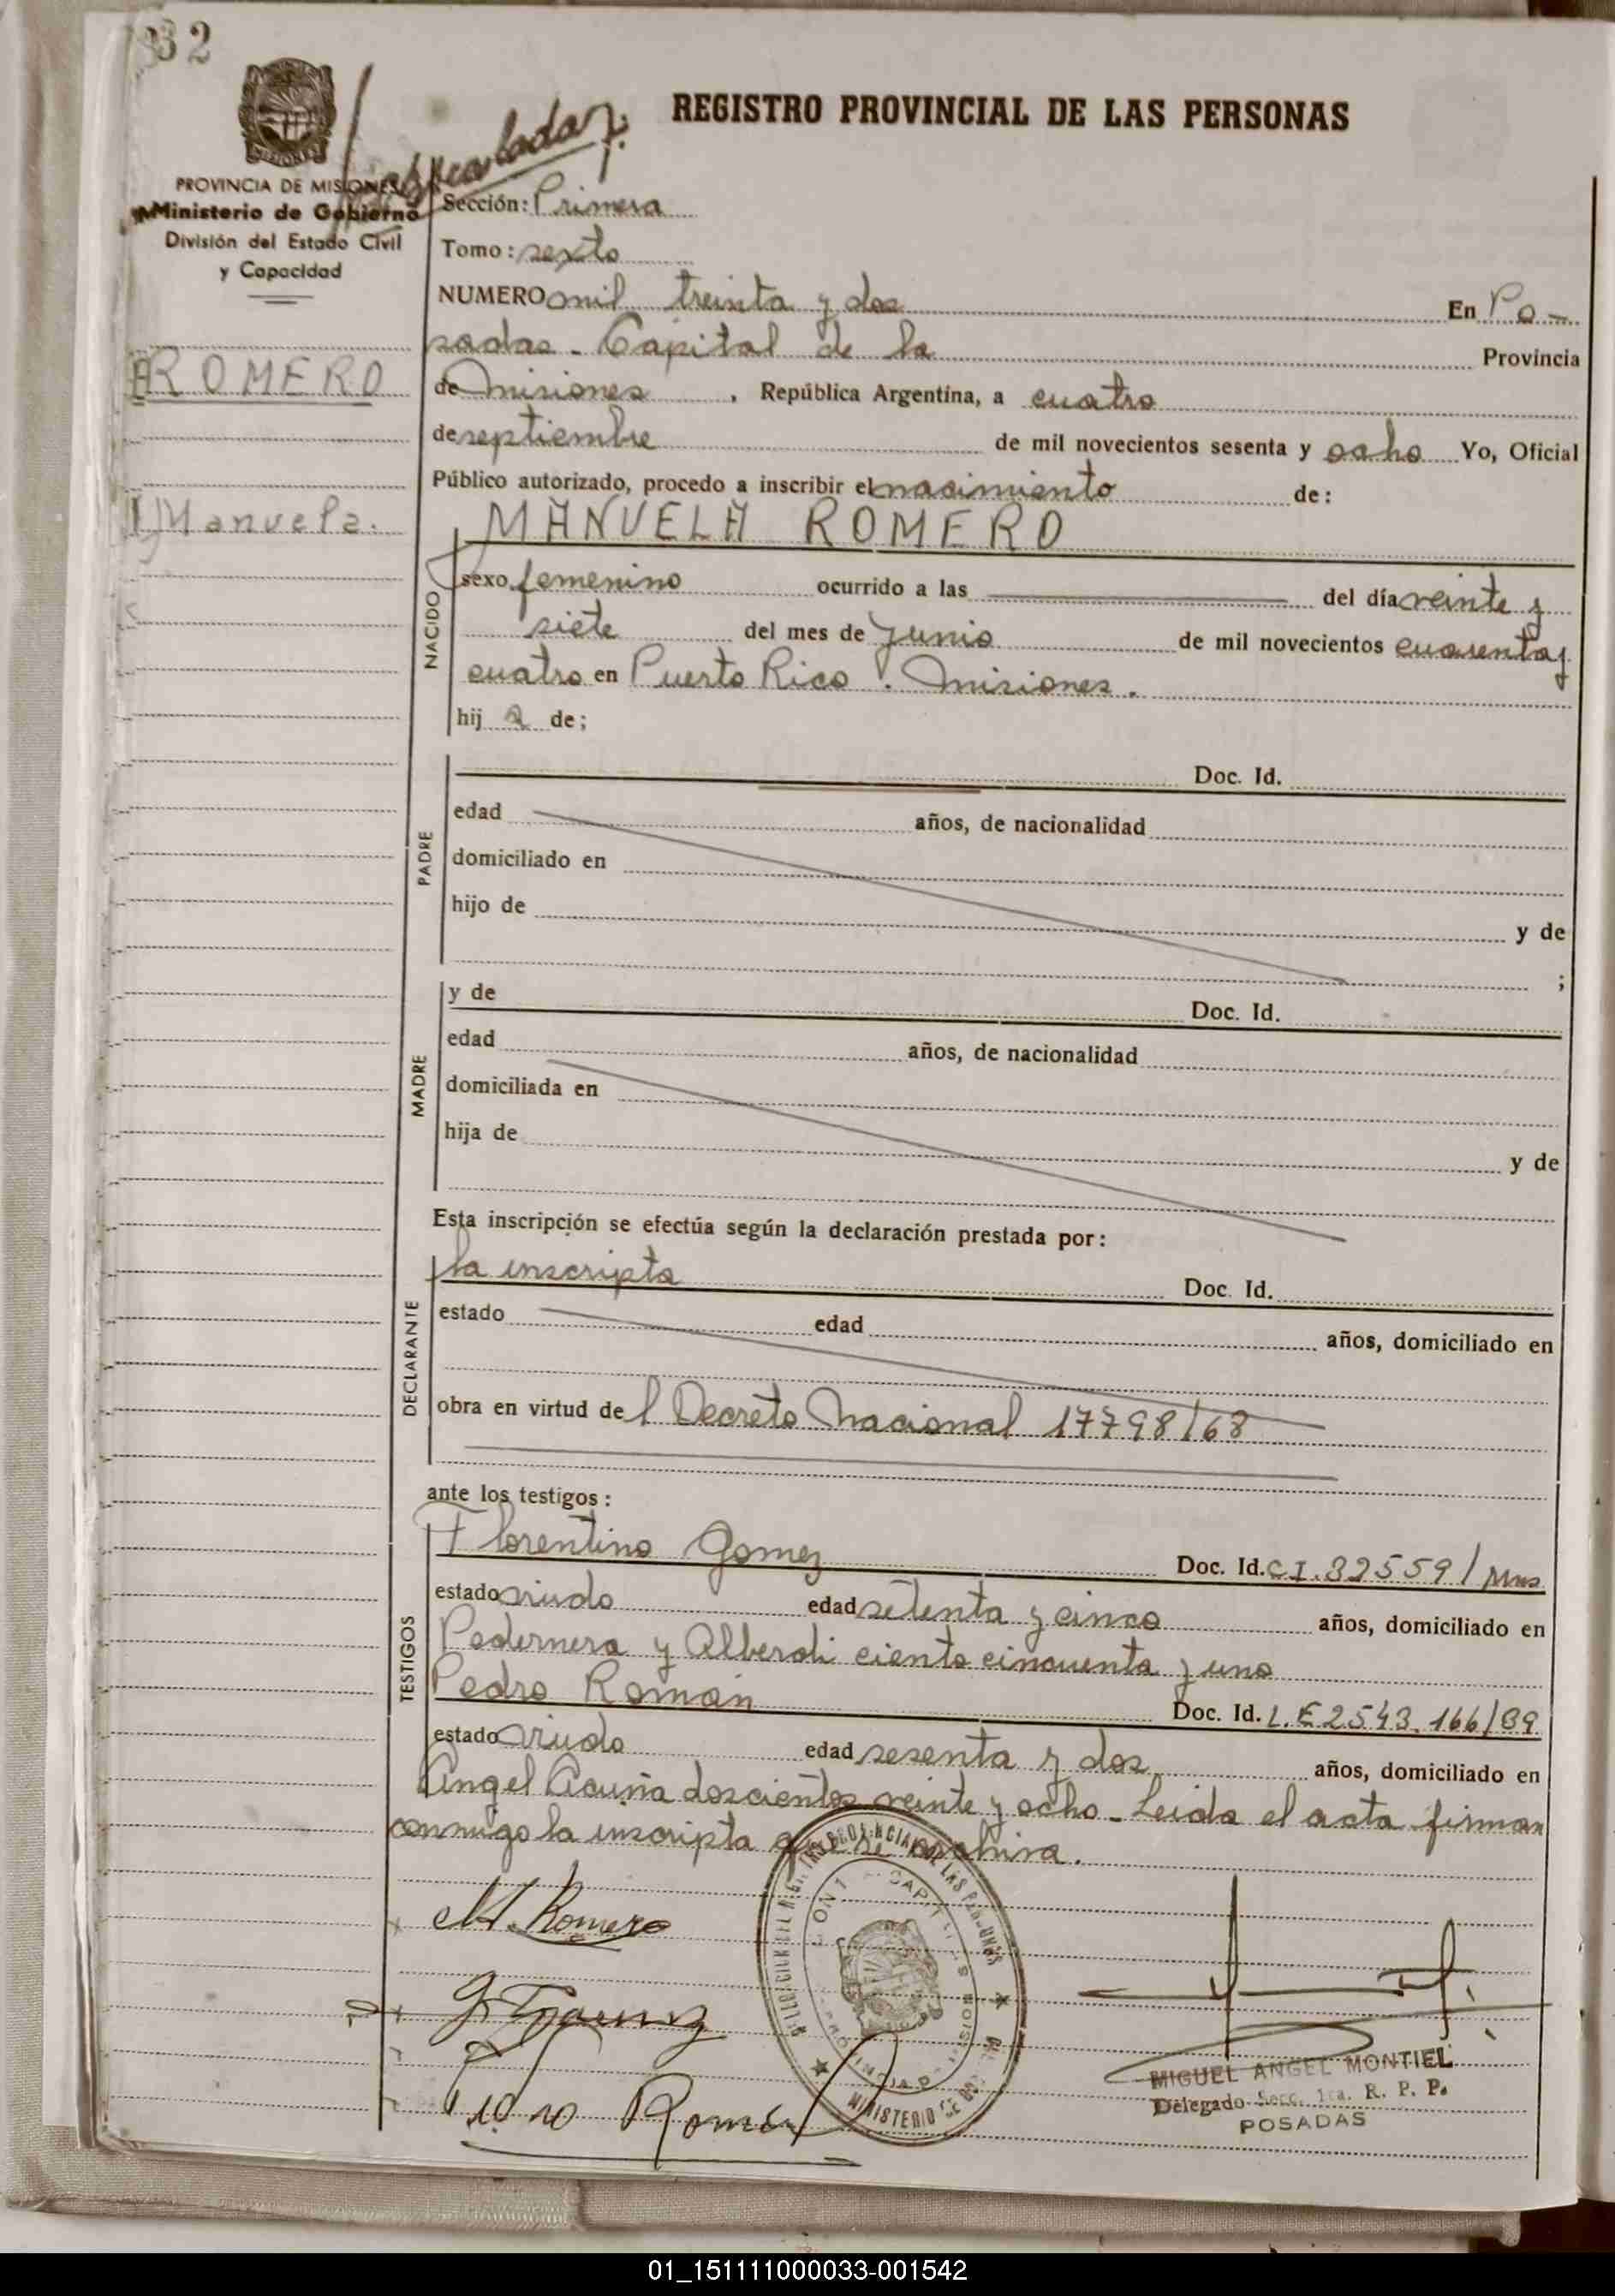 32
REGISTRO PROVINCIAL DE LAS PERSONAS
PROVINCIA DE MISIONES
Ministerio de Gobierno
División del Estado Civil
y Capacidad
Sección: Primera
Tomo: sexto
NUMERO mil treinta y dos En Po-
sadas - Capital de la Provincia
ROMERO
de Misiones, República Argentina, a cuatro
de septiembre de mil novecientos sesenta y ocho Yo, Oficial
Público autorizado, procedo a inscribir el nacimiento de:
Manuela.
MANUELA ROMERO
NACIDO
sexo femenino ocurrido a las del día veinte y
siete del mes de junio de mil novecientos cuarenta y
cuatro en Puerto Rico. Misiones.
hija de;
PADRE
Doc. Id.
edad años, de nacionalidad
domiciliado en
hijo de y de
;
MADRE
y de Doc. Id.
edad años, de nacionalidad
domiciliada en
hija de y de
Esta inscripción se efectúa según la declaración prestada por:
DECLARANTE
la inscripta Doc. Id.
estado edad años, domiciliado en
obra en virtud del Decreto Nacional 17798/68
ante los testigos:
TESTIGOS
Florentino Gomez Doc. Id. C.I. 32559/Mns
estado viudo edad setenta y cinco años, domiciliado en
Pedernera y Alberdi ciento cincuenta y uno
Pedro Román Doc. Id. L.E 2543.166/39
estado viudo edad sesenta y dos años, domiciliado en
Angel Acuña doscientos veinte y ocho - Leida el acta firman
conmigo la inscripta que se archiva.
M. Romero
Román
MINISTERIO DE
MIGUEL ANGEL MONTIEL
Delegado Secc. 1ra. R. P. P.
POSADAS
01_151111000033-001542